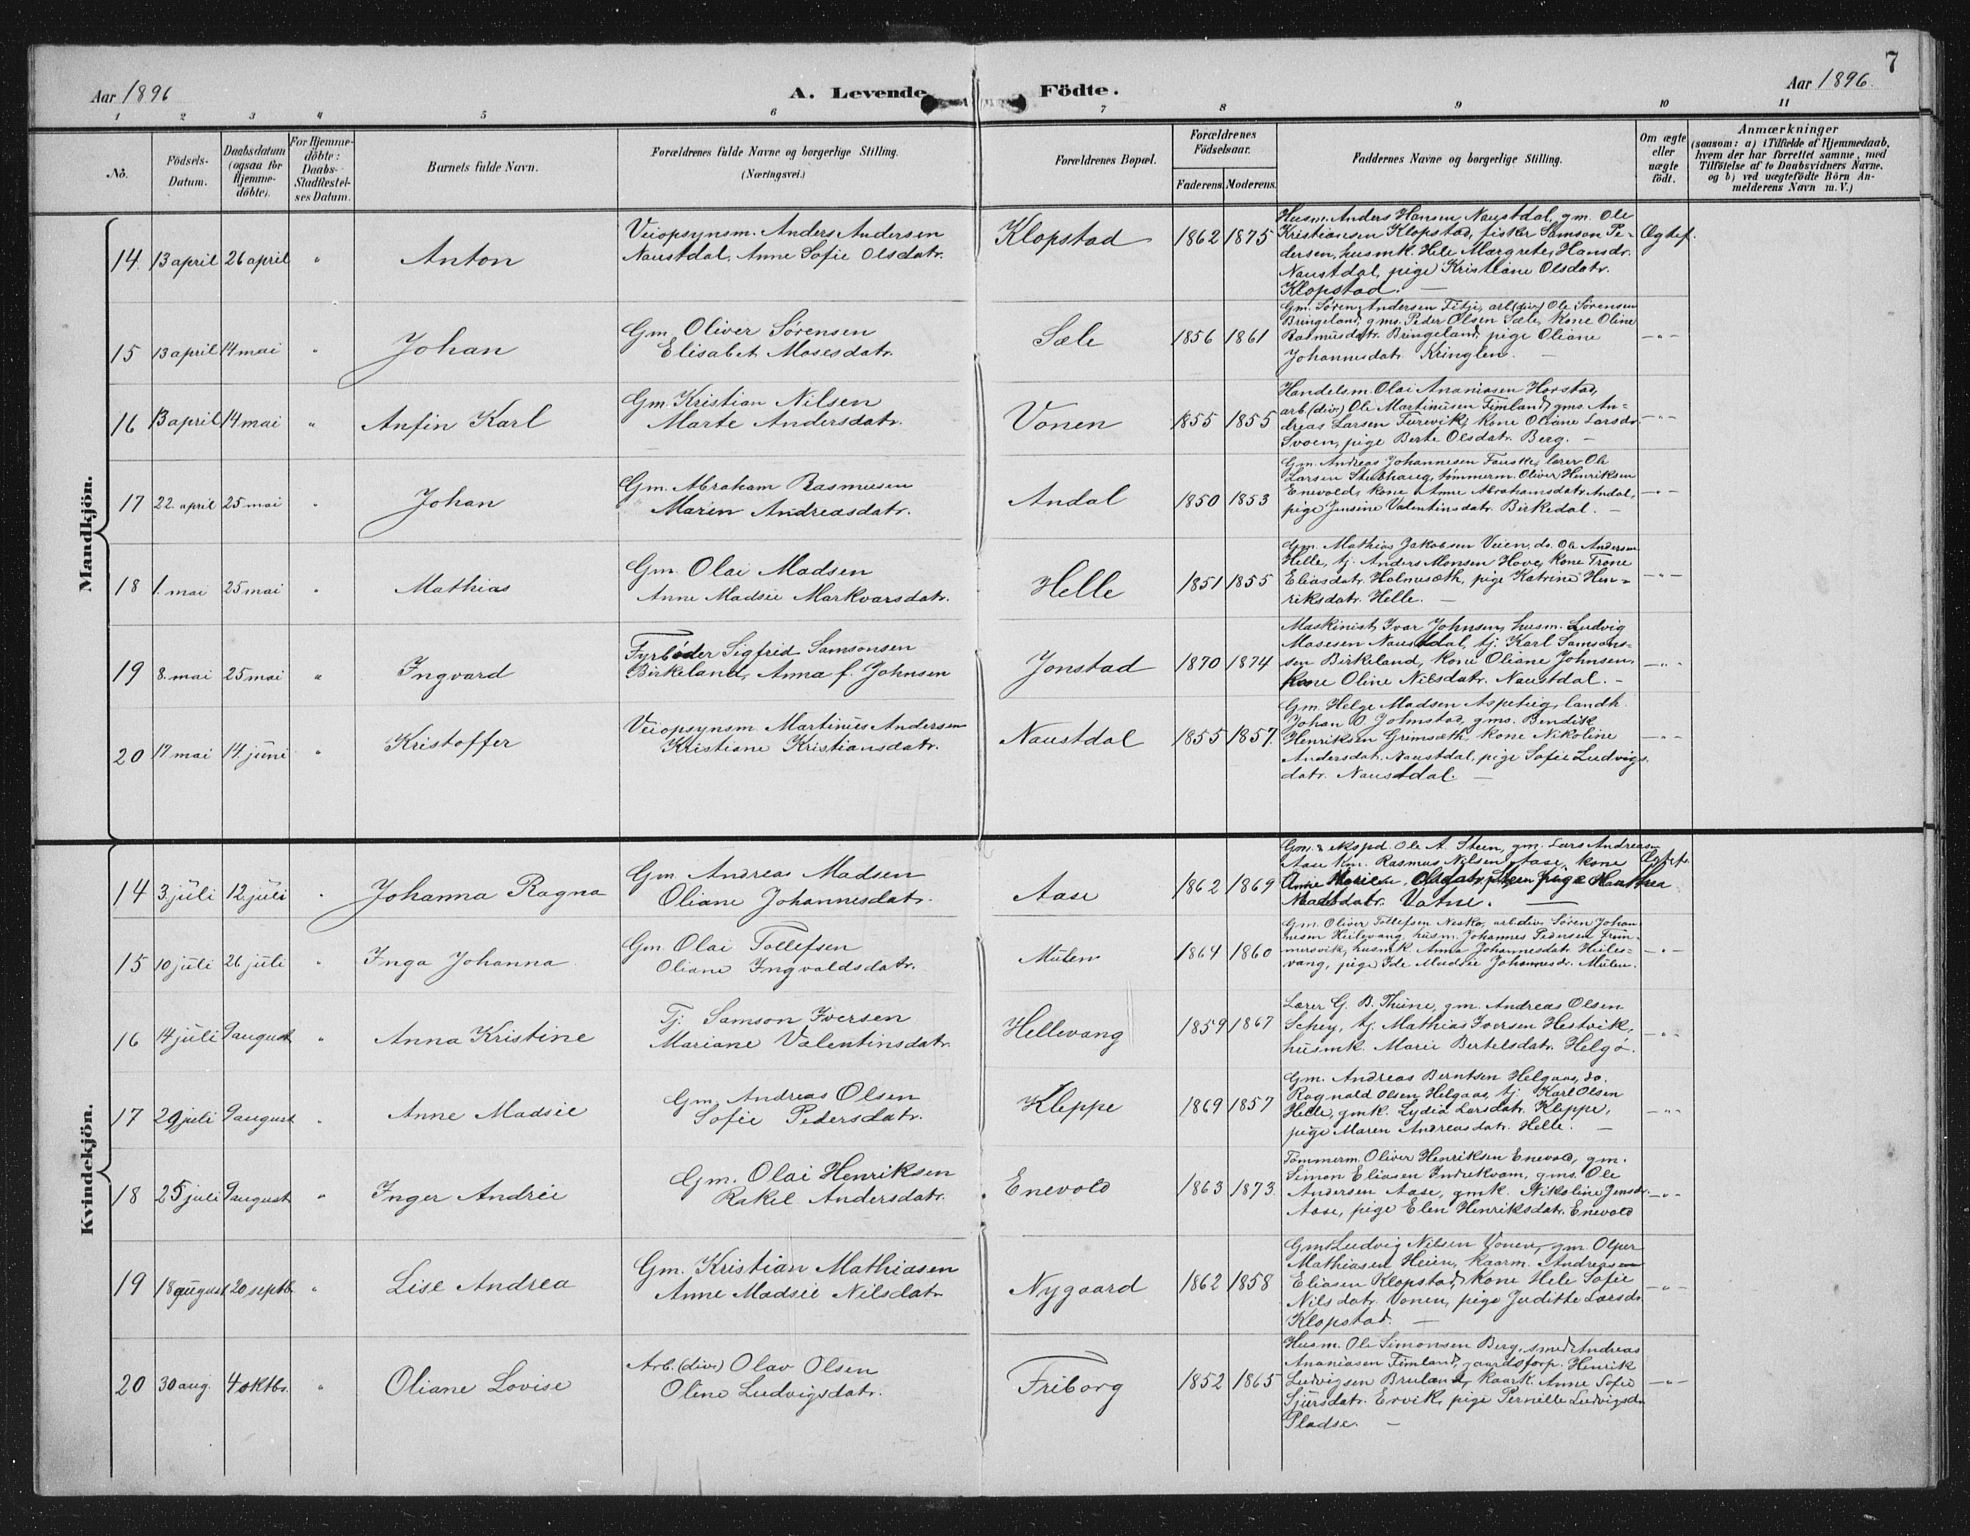 7
Aar 1896
A. Levende Födte.
Aar 1896.
1 2 3 4 5 6 7 8 9 10 11
No.
Födsels-
Datum.
Daabsdatum
(ogsaa for
Hjemme-
döbte).
For Hjemme-
döbte:
Daabs-
Stadfæstel-
ses Datum.
Barnets fulde Navn.
Forældrenes fulde Navne og borgerlige Stilling.
(Næringsvei.)
Forældrenes Bopæl.
Forældrenes
Födselsaar.
Faderens. Moderens.
Faddernes Navne og borgerlige Stilling.
Om ægte
eller
uægte
födt.
Anmærkninger
(saasom: a) i Tilfælde af Hjemmedaab,
hvem der har forrettet samme, med
Tilföielse af to Daabsvidners Navne.
og b) ved uægtefödte Börn An-
melderens Navn m. V.)
Mandkjön.
14. 13 april 26 april " Anton
Veiopsynsm. Anders Andersen
Naustdal, Anne Sofie Olsdatr.
Klopstad 1862 1875
Husm. Anders Hansen Naustdal, gm. Ole
Kristiansen Klopstad, fisker Samson Pe-
dersen, husmk. Hele Margrete Hansdr.
Naustdal, pige Kristiane Olsdatr.
Klopstad. —
Ægtef.
15 13 april 14 mai " Johan
Gm. Oliver Sørensen
Elisabet Mosesdatr.
Sæle 1856 1861
Gm. Søren Andersen Fitje, arb (div) Ole Sørensen
Bringeland, gms. Peder Olsen Sæle, kone Oline
Rasmusdatr. Bringeland, pige Oliane
Johannesdatr. Kringlen. —
—"—
16 13 april 14 mai " Anfin Karl
Gm. Kristian Nilsen
Marte Andersdatr.
Vonen 1855 1855
Handelsm. Olai Ananiasen Horstad,
arb (div) Ole Martinusen Fimland, gms. An-
dreas Larsen Furevik, kone Oliane Larsdr.
Svoen, pige Berte Olsdatr. Berg. —
—"—
17 22. april 25 mai " Johan
Gm. Abraham Rasmusen
Maren Andreasdatr.
Andal 1850 1853
Gm. Andreas Johannesen Fauske, lærer Ole
Larsen Stubhaug, tømmerm. Oliver Henriksen
Enevold, kone Anne Abrahamsdatr. Andal,
pige Jensine Valentinsdatr. Birkedal. —
—"—
18 1. mai 25 mai " Mathias
Gm. Olai Madsen
Anne Madsie Markvarsdatr.
Helle 1851 1855
Gm. Mathias Jakobsen Veien, do. Ole Andersen
Helle, tj. Anders Monsen Hove, kone Trone
Eliasdatr. Holmesæth, pige Katrine Hen-
riksdatr. Helle. —
—"—
19 8. mai 25 mai " Ingvard
Fyrbøder Sigfrid Samsonsen
Birkeland, Anna f. Johnsen
Jonstad 1870 1874
Maskinist Ivar Johnsen, husm. Ludvig
Mosesen Naustdal, tj. Karl Samson-
sen Birkeland, kone Oliane Johnsen,
kone Oline Nilsdatr. Naustdal. —
—"—
20 17 mai 14 juni " Kristoffer
Veiopsynsm. Martinus Andersen
Kristiane Kristiansdatr.
Naustdal 1855 1857.
Gm. Helge Madsen Aspeteig, landh.
Johan O. Johnstad, gms. Bendik
Henriksen Grimsæth, kone Nikoline
Andersdatr. Naustdal, pige Sofie Ludvigs
datr. Naustdal. —
—"—
Kvindekjön.
14 3 juli 12 juli " Johanna Ragna
Gm. Andreas Madsen
Oliane Johannesdatr.
Aase 1862 1869
Gm. & ekspd. Ole A. Steen, gm. Lars Andreasen
Aase, km. Rasmus Nilsen Aase, kone
Anne Marie Olsdatr. Steen, pige Manthea
Madsdatr. Vatne. —
Ægtef.
15 10 juli 26 juli " Inga Johanna
Gm. Olai Tollefsen
Oliane Ingvaldsdatr.
Mulen 1864 1860
Gm. Oliver Tollefsen Neskø, arb div. Søren Johan-
nesen Heilevang, husm. Johannes Pedersen Frim-
mersvik, husmk. Anna Johannesdatr. Heile-
vang, pige Ide Madsie Johannesdr. Mulen.
—"—
16 14 juli 9 august " Anna Kristine
Tj. Samson Iversen
Mariane Valentinsdatr.
Hellevang 1859 1867
Lærer G. B. Thune, gm. Andreas Olsen
Schey, tj. Mathias Iversen Hestvik,
husmk. Marie Bertelsdatr. Helgø.
—"—
17 29 juli 9 august " Anne Madsie
Gm. Andreas Olsen
Sofie Pedersdatr.
Kleppe 1869 1857
Gm. Andreas Berntsen Helgaas, do.
Ragnald Olsen Helgaas, tj. Karl Olsen
Helle, gmk. Lydia Larsdatr. Kleppe,
pige Maren Andreasdatr. Helle. —
—"—
18 25 juli 9 august " Inger Andrea
Gm. Olai Henriksen
Rakel Andersdatr.
Enevold 1863 1873.
Tømmerm. Oliver Henriksen Enevold, gm.
Simon Eliasen Indrekvam, gms. Ole
Andersen Aase, gmk. Nikoline Jensdr.
Aase, pige Elen Henriksdatr. Enevold
—"—
19 18 august 20 septb. " Lise Andrea
Gm. Kristian Mathiasen
Anne Madsie Nilsdatr
Nygaard 1862 1858
Gms Ludvig Nilsen Vonen, gm. Olper
Mathiasen Heien, kaarm. Andreas
Eliasen Klopstad, kone Hele Sofie
Nilsdatr. Vonen, pige Juditte Larsdr.
Klopstad. —
—"—
20 30 aug. 4 oktbr. " Oliane Lovise
Arb. (div) Olav Olsen
Oline Ludvigsdatr.
Friborg 1852 1865
Husm. Ole Simonsen Berg, smed Andreas
Ananiasen Fimland, gaardsforp. Henrik
Ludvigsen Bruland, kaark. Anne Sofie
Sjursdatr. Ervik, pige Pernille Ludvigsdr.
Pladse. —
—"—